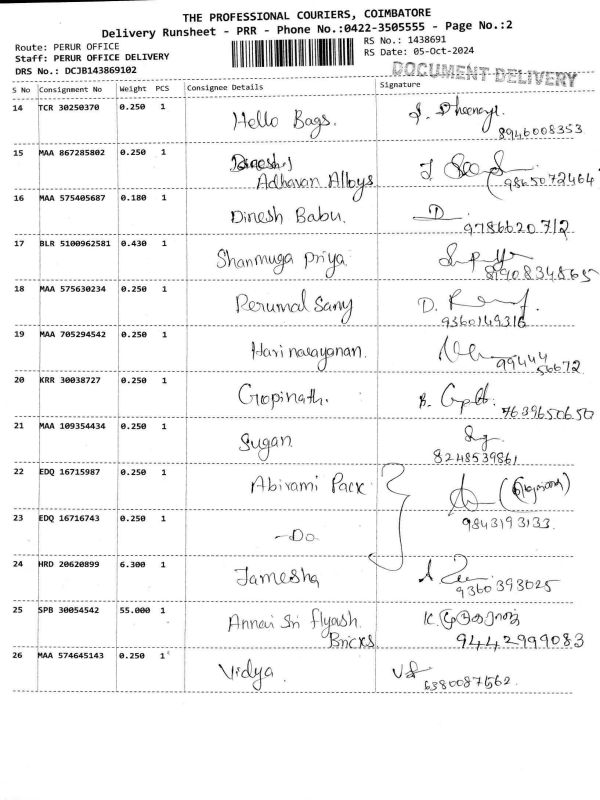 THE PROFESSIONAL COURIERS, COIMBATORE
Delivery Runsheet - PRR - Phone No.:0422-3505555 - Page No.:2
Route: PERUR OFFICE
Staff: PERUR OFFICE DELIVERY
DRS No.: DCJB143869102
RS No.: 1438691
RS Date: 05-Oct-2024
DOCUMENT DELIVERY
S No Consignment No Weight PCS Consignee Details Signature
14 TCR 30250370 0.250 1 Hello Bags. S. Dheenaye
8946008353
15 MAA 867285802 0.250 1 Dinesh
Adhavan Alloys 9865072464
16 MAA 575405687 0.180 1 Dinesh Babu. D
9786620712
17 BLR 5100962581 0.430 1 Shanmuga priya
8190834865
18 MAA 575630234 0.250 1 Perumal Samy D.
9360149316
19 MAA 705294542 0.250 1 Hari narayanan.
99444
56672
20 KRR 30038727 0.250 1 Gopinath. B.
7639650650
21 MAA 109354434 0.250 1 Sugan
8248539861
22 EDQ 16715987 0.250 1 Abirami Pack
23 EDQ 16716743 0.250 1 -Do 9843193133
24 HRD 20620899 6.300 1 Jamesha
9360393025
25 SPB 30054542 55.000 1 Annai Sri flyash K. முருகராஜ்
Bricks 9442999083
26 MAA 574645143 0.250 1 Vidya
6380087562